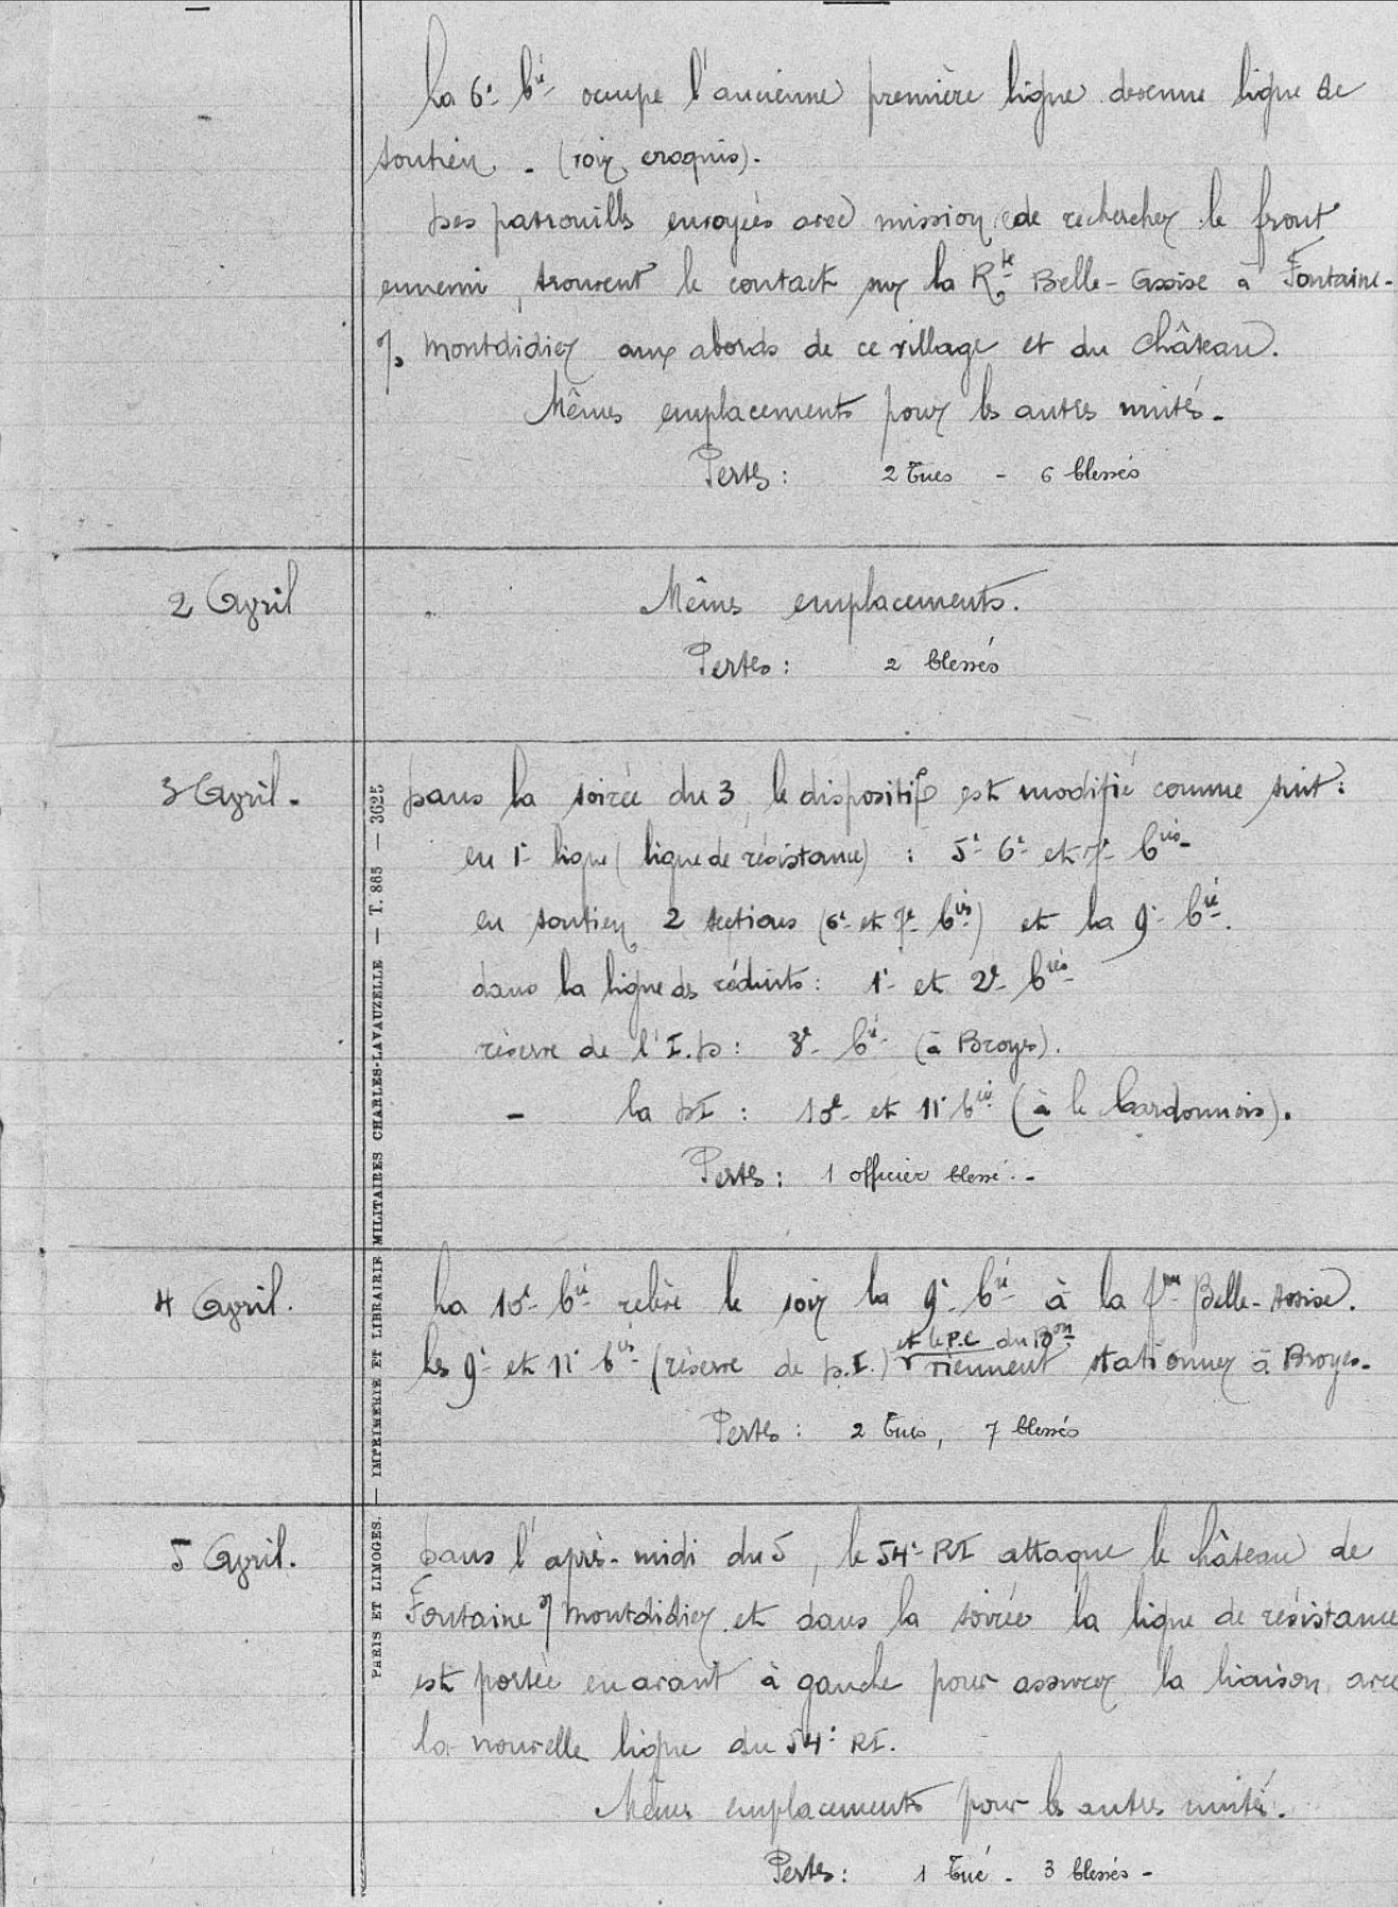 La 6e Cie occupe l'ancienne première ligne devenue ligne de
soutien. (voir croquis).
Des patrouilles envoyées avec mission de rechercher le front
ennemi, trouvent le contact sur la Rte Belle-Assise à Fontaine-
s/s Montdidier aux abords de ce village et du Château.
Mêmes emplacements pour les autres unités.
Pertes : 2 tués - 6 blessés
2 Avril
Mêmes emplacements.
Pertes : 2 blessés
3 Avril.
Dans la soirée du 3, le dispositif est modifié comme suit :
en 1e ligne (ligne de résistance) : 5e 6e et 7e Cies
en soutien 2 sections (6e et 7e Cies) et la 9e Cie.
dans la ligne des réduits : 1e et 2e Cies
réserve de l'I.D : 3e Cie (à Broyes).
- la DI : 10e et 11e Cies (à le Cardonnois).
Pertes : 1 officier blessé. -
4 Avril.
La 10e Cie relève le soir la 9e Cie à la fme Belle-Assise.
et le P.C du Bon
les 9e et 11e Cies (réserve de D.I.) viennent stationner à Broyes.
Pertes : 2 tués, 7 blessés
5 Avril.
Dans l'après-midi du 5, le 54e RI attaque le château de
Fontaine s/ Montdidier et dans la soirée la ligne de résistance
est portée en avant à gauche pour assurer la liaison avec
la nouvelle ligne du 54e RI.
Mêmes emplacements pour les autres unités.
Pertes : 1 tué - 3 blessés -
PARIS ET LIMOGES. — IMPRIMERIE ET LIBRAIRIE MILITAIRES CHARLES-LAVAUZELLE — T. 865 — 3625